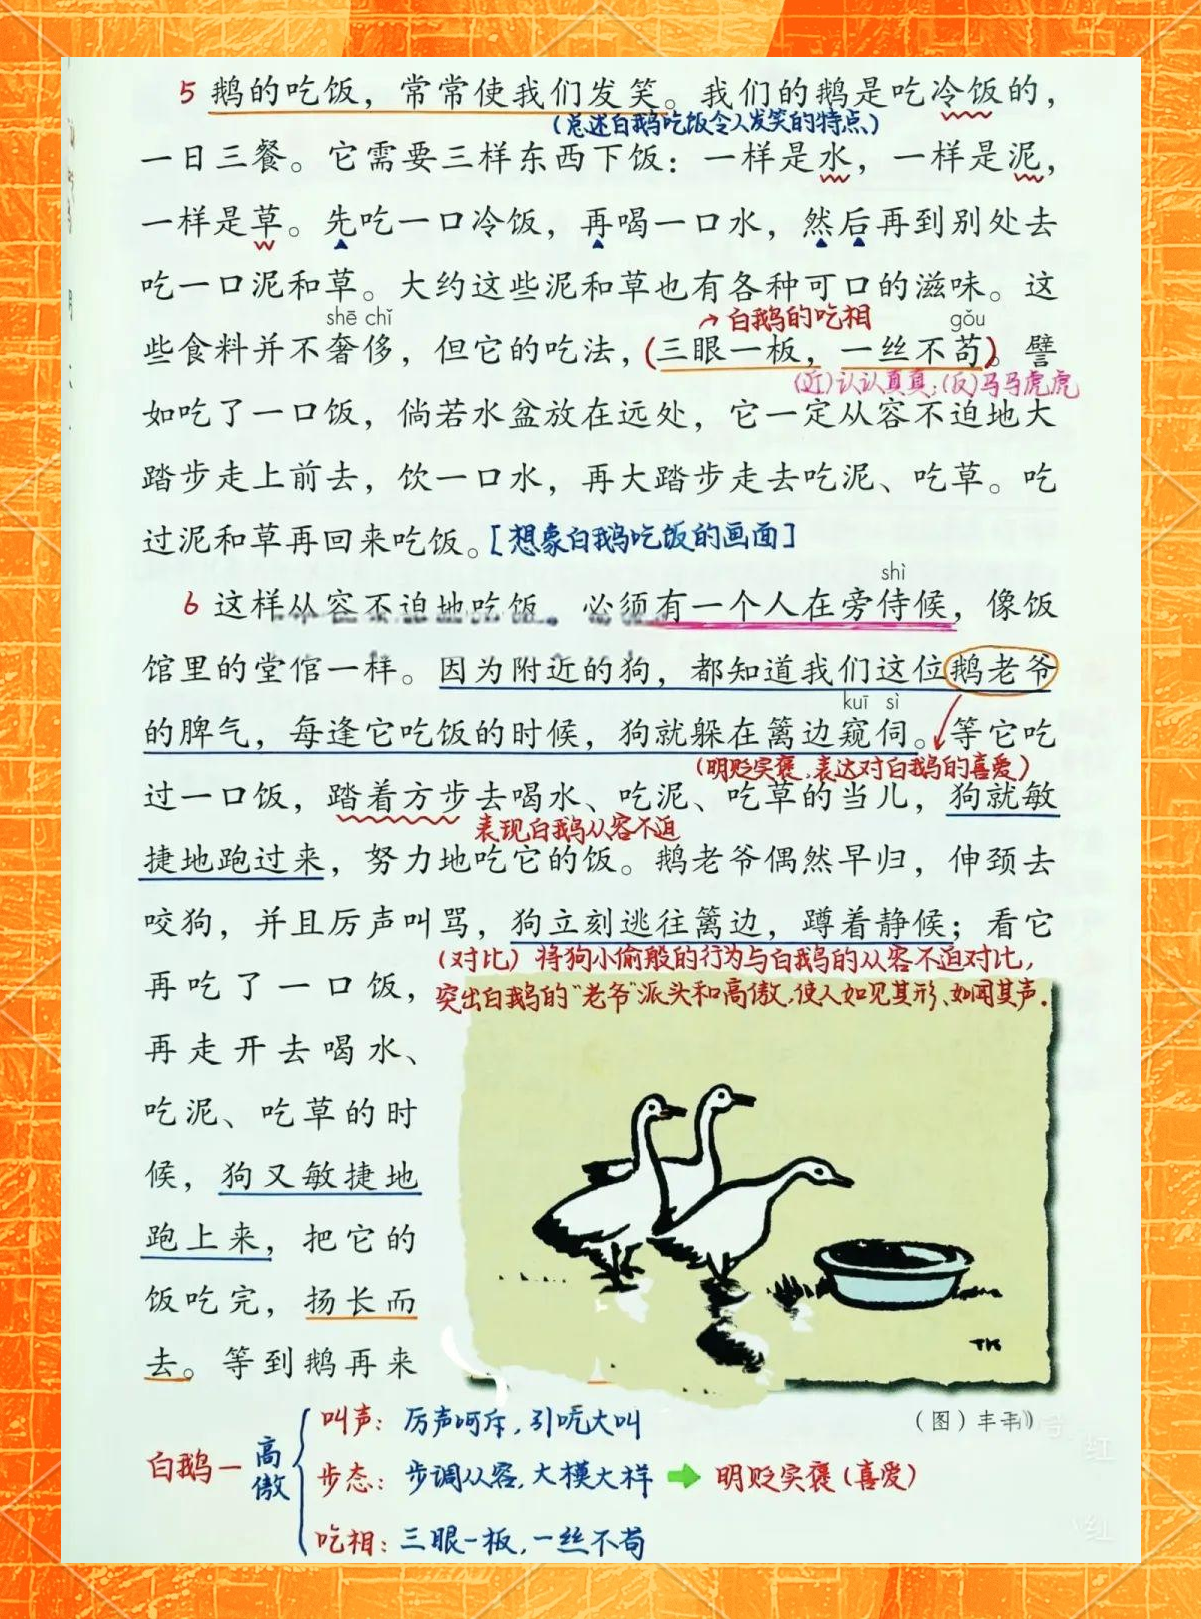 5 鹅的吃饭，常常使我们发笑。我们的鹅是吃冷饭的，
（总述白鹅吃饭令人发笑的特点）
一日三餐。它需要三样东西下饭：一样是水，一样是泥，
一样是草。先吃一口冷饭，再喝一口水，然后再到别处去
吃一口泥和草。大约这些泥和草也有各种可口的滋味。这
shē chǐ
→白鹅的吃相
gǒu
些食料并不奢侈，但它的吃法，(三眼一板，一丝不苟)。譬
(近)认认真真;(反)马马虎虎
如吃了一口饭，倘若水盆放在远处，它一定从容不迫地大
踏步走上前去，饮一口水，再大踏步走去吃泥、吃草。吃
过泥和草再回来吃饭。[想象白鹅吃饭的画面]
shì
6 这样从容不迫地吃饭，必须有一个人在旁侍候，像饭
馆里的堂倌一样。因为附近的狗，都知道我们这位鹅老爷
kuī sì
的脾气，每逢它吃饭的时候，狗就躲在篱边窥伺。等它吃
(明贬实褒，表达对白鹅的喜爱)
过一口饭，踏着方步去喝水、吃泥、吃草的当儿，狗就敏
表现白鹅从容不迫
捷地跑过来，努力地吃它的饭。鹅老爷偶然早归，伸颈去
咬狗，并且厉声叫骂，狗立刻逃往篱边，蹲着静候；看它
(对比)将狗小偷般的行为与白鹅的从容不迫对比，
再吃了一口饭，
突出白鹅的"老爷"派头和高傲，使人如见其形、如闻其声.
再走开去喝水、
吃泥、吃草的时
候，狗又敏捷地
跑上来，把它的
饭吃完，扬长而
去。等到鹅再来
TK
（图）丰
白鹅一高傲
叫声：厉声呵斥，引吭大叫
步态：步调从容，大模大样➡明贬实褒(喜爱)
吃相：三眼一板，一丝不苟
红
红